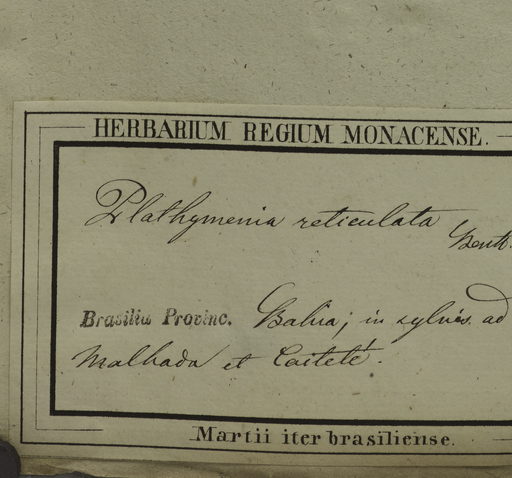 HERBARIUM REGIUM MONACENSE.
Plathymenia reticulata Benth.
Brasilia Provinc. Bahia; in sylvis ad
Malhada et Caiteté.
Martii iter brasiliense.